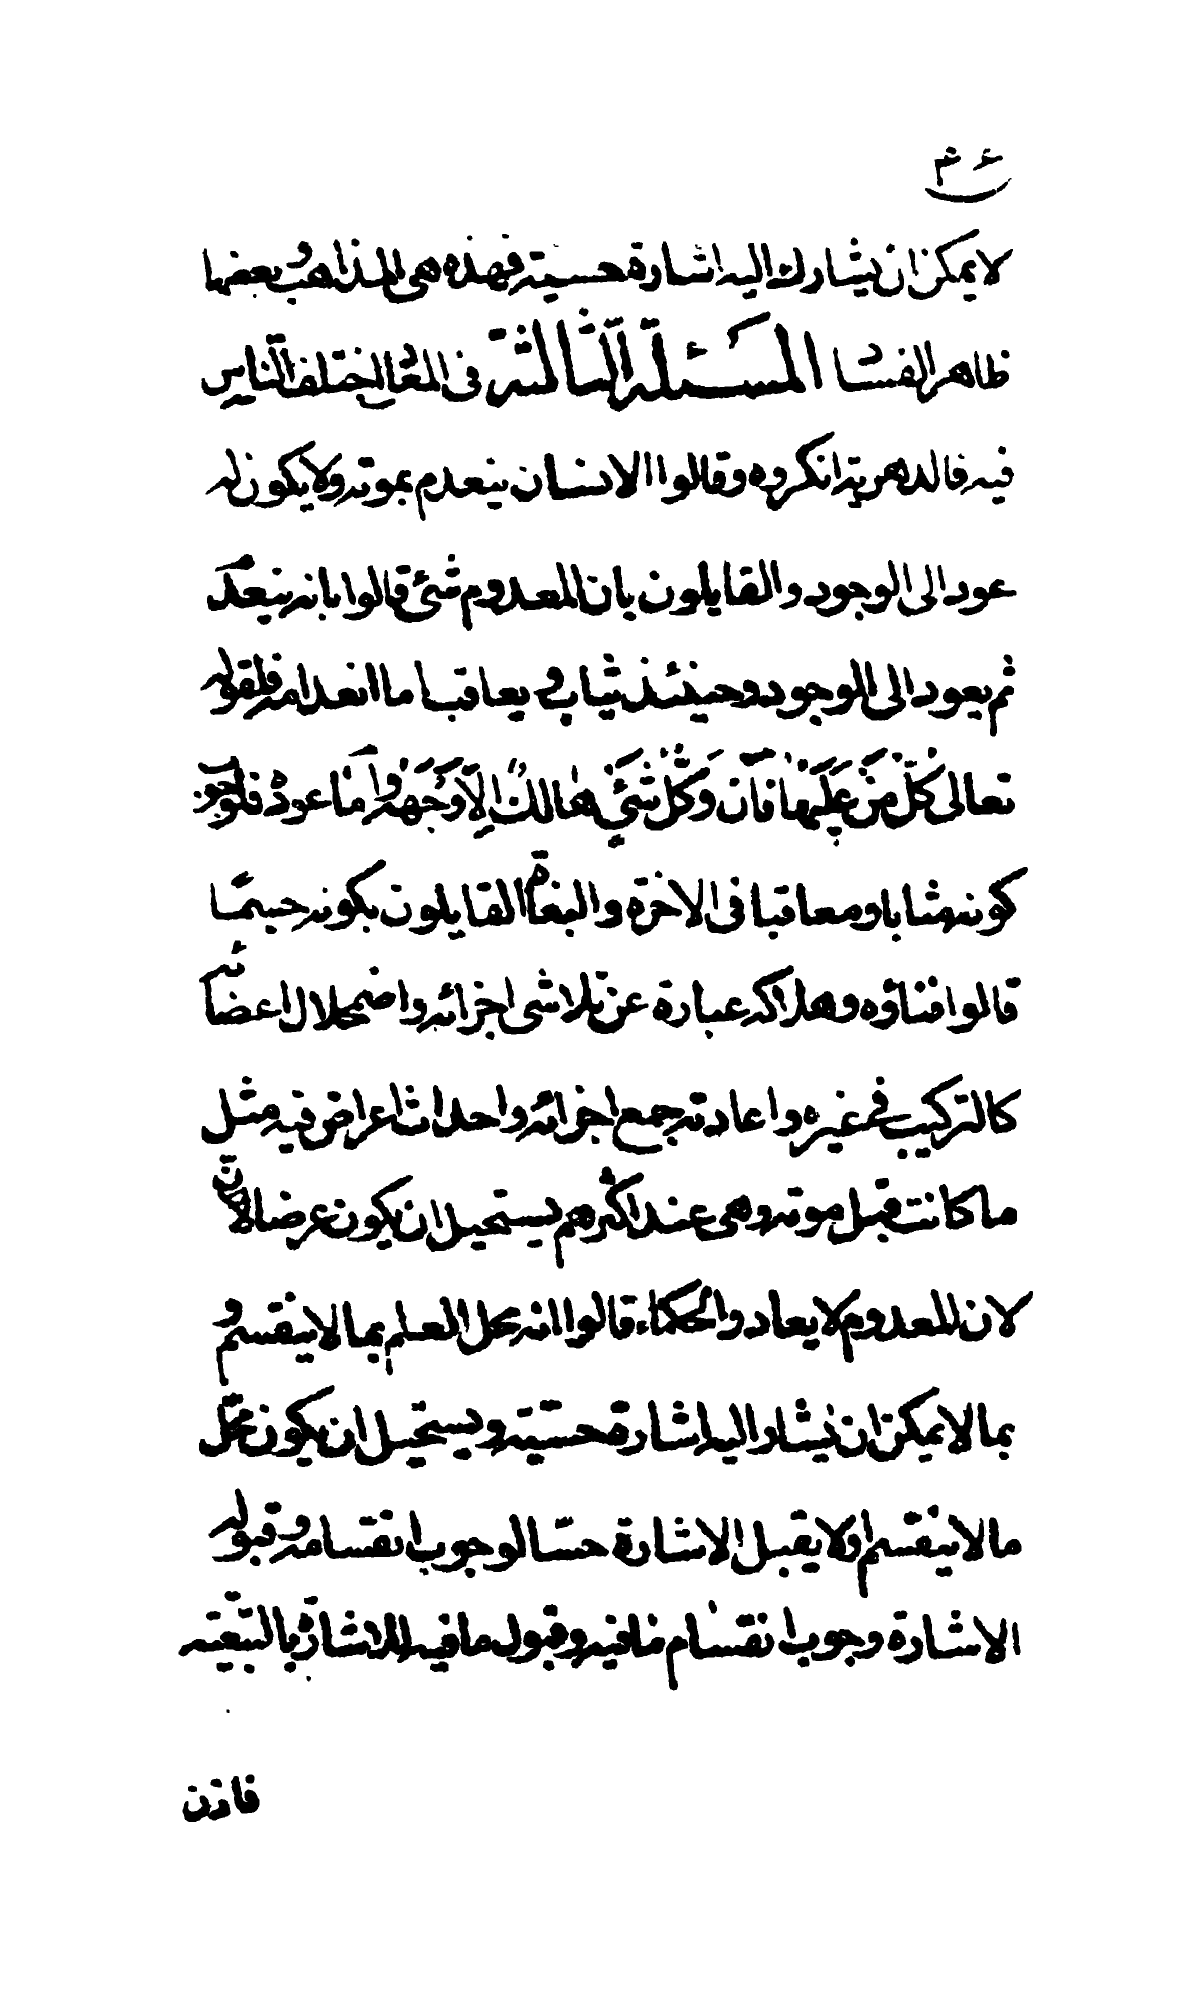 لا يمكن ان يشارك اليه اشارة حسية فهذه هي المذاهب وبعضها
ظاهر الفساد المسئلة الثالثة في المعاد اختلف الناس
فيه فالدهرية انكروه وقالوا الانسان ينعدم بموته ولا يكون له
عود الى الوجود والقايلون بان المعدوم شئ قالوا بانه ينعدم
ثم يعود الى الوجود وحينئذ يثاب ويعاقب اما انعدامه فلقوله
تعالى كُلُّ مَنْ عَلَيْهَا فَانٍ وَكُلُّ شَيْئٍ هَالِكٌ اِلَّا وَجْهَهُ وَاَمَّا عوده فلوجوب
كونه مثابا ومعاقبا في الاخرة والبغام القايلون بكونه جسما
قالوا فناؤه وهلاكه عبارة عن تلاشى اجزائه واضمحلال اعضائه
كالتركيب في غيره واعادته جمع اجزائه واحداث اعراض فيه مثل
ما كانت قبل موته وهي عند اكثرهم يستحيل ان يكون عرضا لان
لان المعدوم لا يعاد والحكماء قالوا انه محل العلم بما لا ينقسم و
بما لا يمكن ان يشار اليه اشارة حسية ويستحيل ان يكون محل
ما لا ينقسم اولا يقبل الاشارة حسا لوجوب انقسامه وقبوله
الاشارة وجوب انقسام ما فيه وقبول ما فيه للاشارة بالتبعية
فاذن